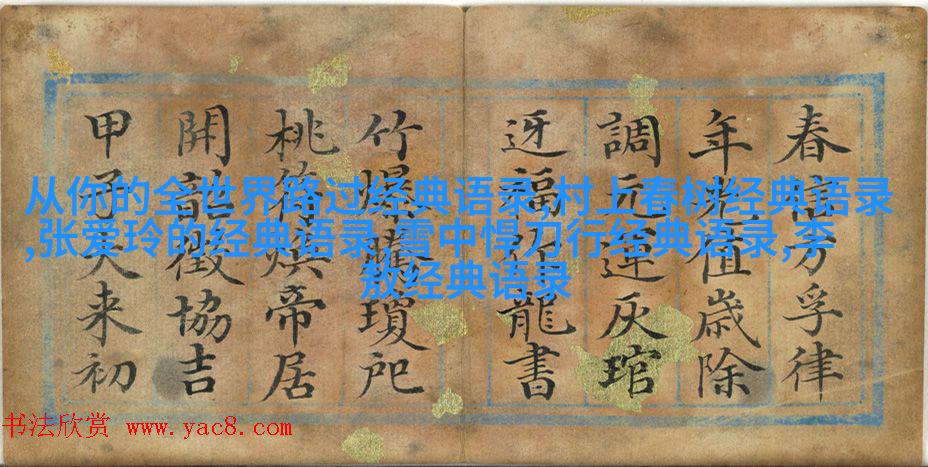 春方孚律
年光值歲除
調運灰琯
迓福龍書
竹爆瓊戺
桃符煥帝居
開韶徵協吉
甲子天来初
从你的全世界路过经典语录,村上春树经典语录
,张爱玲的经典语录,雪中悍刀行经典语录,李
敖经典语录
书法欣赏 www.yac8.com